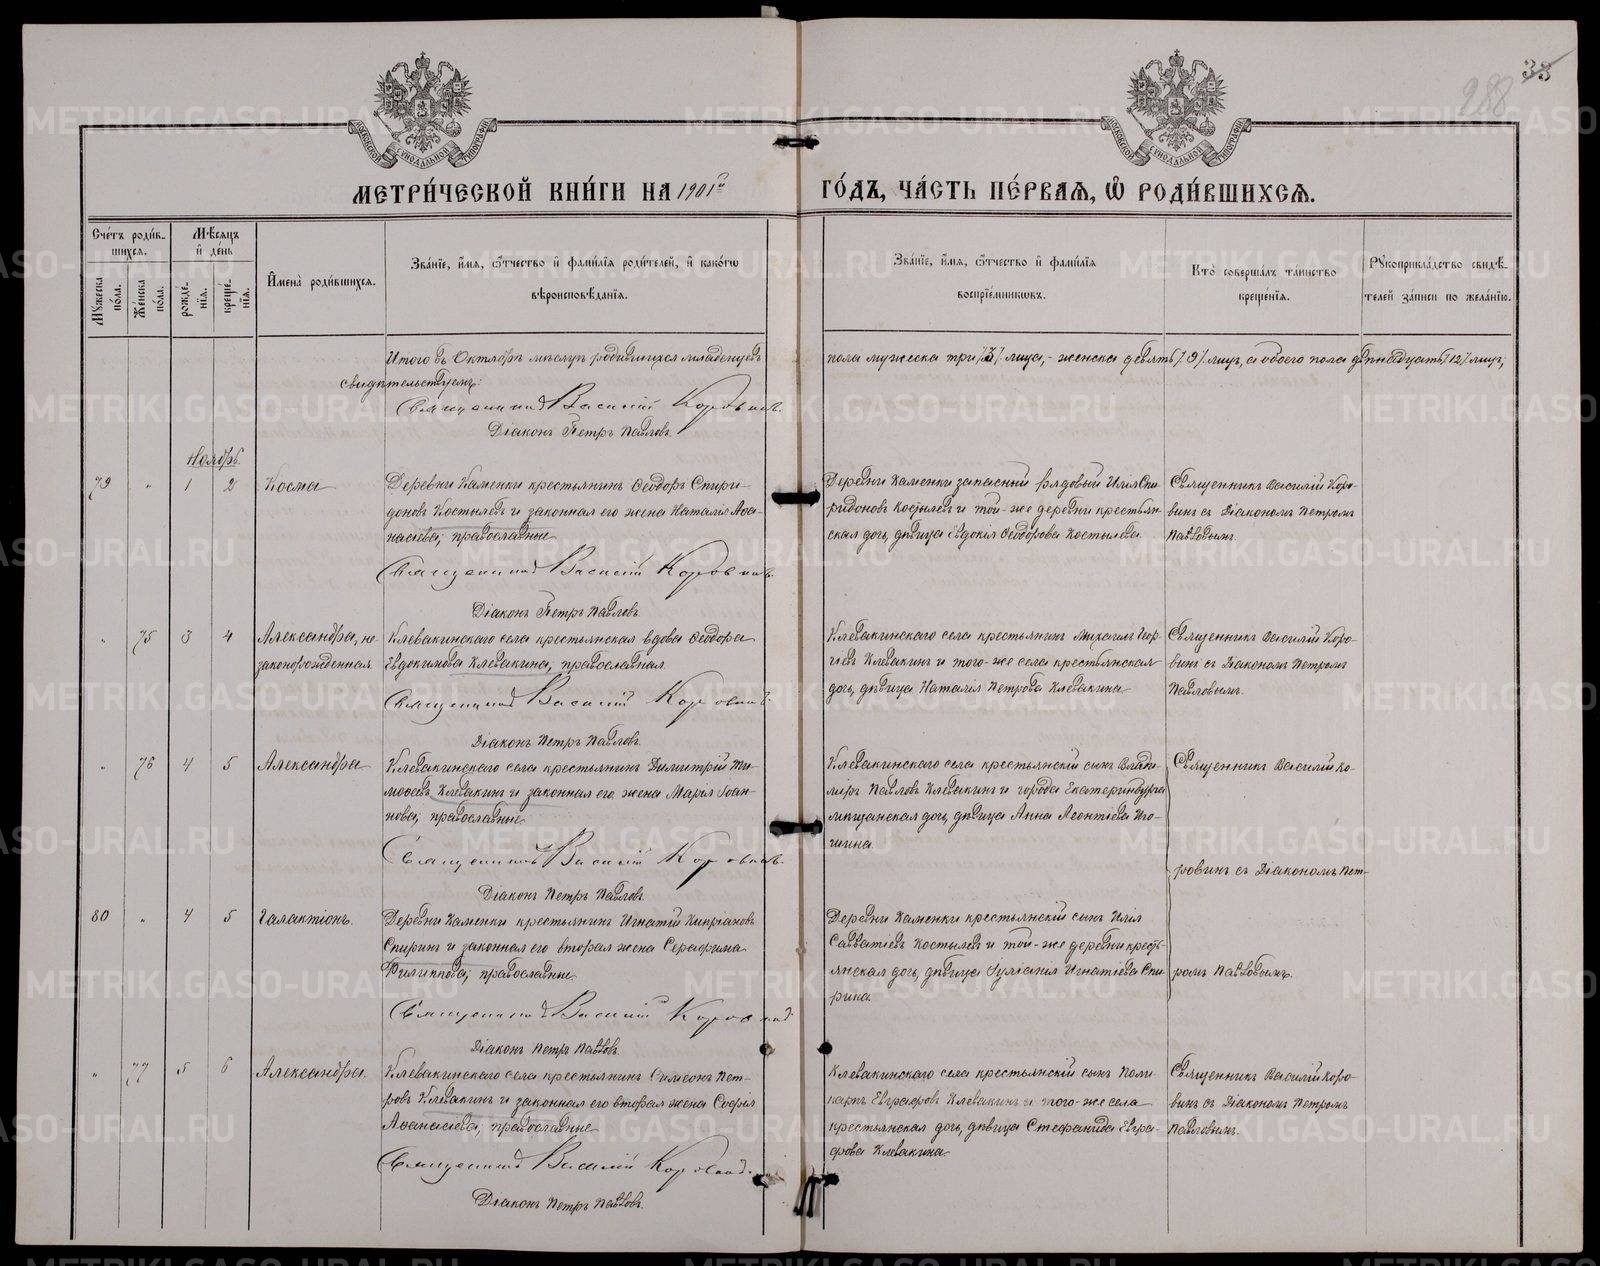 288
38
МОСКОВСКОЙ СУНОДАЛЬНОЙ ТИПОГРАФИИ
МОСКОВСКОЙ СУНОДАЛЬНОЙ ТИПОГРАФИИ
МЕТРИ́ЧЕСКОЙ КНИ́ГИ НА 1901й
ГО́ДЪ, ЧА́СТЬ ПЕ́РВАѦ, Ѡ РОДИ́ВШИХСѦ.
Сче́тъ роди́в-
шихсѧ.
Мꙋжеска по́ла.
Же́нска по́ла.
Мѣ́сѧцъ
и҆ де́нь
рожде́-нїѧ.
креще́-нїѧ.
И҆мена̀ роди́вшихсѧ.
Зва́нїе, и҆́мѧ, ѻ҆́тчество и҆ фамі́лїѧ роди́телей, и҆ како́гѡ
вѣроисповѣ́данїѧ.
Зва́нїе, и҆́мѧ, ѻ҆́тчество и҆ фамі́лїѧ
воспрїе́мникѡвъ.
Кто̀ соверша́лъ та́инство
креще́нїѧ.
Рꙋкоприкла́дство свидѣ́-
телей за́писи по жела́нїю.
Итого въ Октябрѣ мѣсяцѣ родившихся младенцевъ
пола мужеска три /3/ лица, - женска девять /9/ лицъ, а обоего пола двѣнадцать /12/ лицъ;
свидѣтельствуемъ:
Священникъ Василій Коровинъ.
Діаконъ Петръ Павловъ.
Ноябрь.
79 " 1 2 Косма
Деревни Каменки крестьянинъ Ѳеодоръ Спири-
доновъ Костылевъ и законная его жена Наталія Аѳа-
насіева; православные
Священникъ Василій Коровинъ.
Діаконъ Петръ Павловъ.
Деревни Каменки запасный рядовый Илія Спи-
ридоновъ Костылевъ и той-же деревни крестьян-
ская дочь, дѣвица Евдокія Ѳеодорова Костылева.
Священникъ Василій Коро-
винъ съ Діакономъ Петромъ
Павловымъ.
" 75 3 4 Александра, не-
законорожденная
Клевакинскаго села крестьянская вдова Ѳеодора
Евдокимова Клевакина, православная.
Священникъ Василій Коровинъ.
Діаконъ Петръ Павловъ.
Клевакинскаго села крестьянинъ Михаилъ Геор-
гіевъ Клевакинъ и того-же села крестьянская
дочь, дѣвица Наталія Петрова Клевакина
Священникъ Василій Коро-
винъ съ Діакономъ Петромъ
Павловымъ.
" 76 4 5 Александра
Клевакинскаго села крестьянинъ Димитрій Ти-
моѳеевъ Клевакинъ и законная его жена Марія Іоан-
нова; православные
Священникъ Василій Коровинъ.
Діаконъ Петръ Павловъ.
Клевакинскаго села крестьянскій сынъ Влади-
миръ Павловъ Клевакинъ и города Екатеринбурга
мѣщанская дочь, дѣвица Анна Леонтіева Иго-
шина.
Священникъ Василій Ко-
ровинъ съ Діакономъ Пет-
ромъ Павловымъ.
80 " 4 5 Галактіонъ.
Деревни Каменки крестьянинъ Игнатій Кипріановъ
Спиринъ и законная его вторая жена Серафима
Филиппова; православные
Священникъ Василій Коровинъ.
Діаконъ Петръ Павловъ.
Деревни Каменки крестьянскій сынъ Илія
Савватіевъ Костылевъ и той-же деревни кресть-
янская дочь, дѣвица Іуліанія Игнатіева Спи-
рина.
" 77 5 6 Александра.
Клевакинскаго села крестьянинъ Симеонъ Пет-
ровъ Клевакинъ и законная его вторая жена Софія
Аѳанасіева; православные
Священникъ Василій Коровинъ.
Діаконъ Петръ Павловъ.
Клевакинскаго села крестьянскій сынъ Поли-
карпъ Евграфовъ Клевакинъ и того-же села
крестьянская дочь, дѣвица Стефанида Евгра-
фова Клевакина
Священникъ Василій Коро-
винъ съ Діакономъ Петромъ
Павловымъ.
METRIKI.GASO-URAL.RU